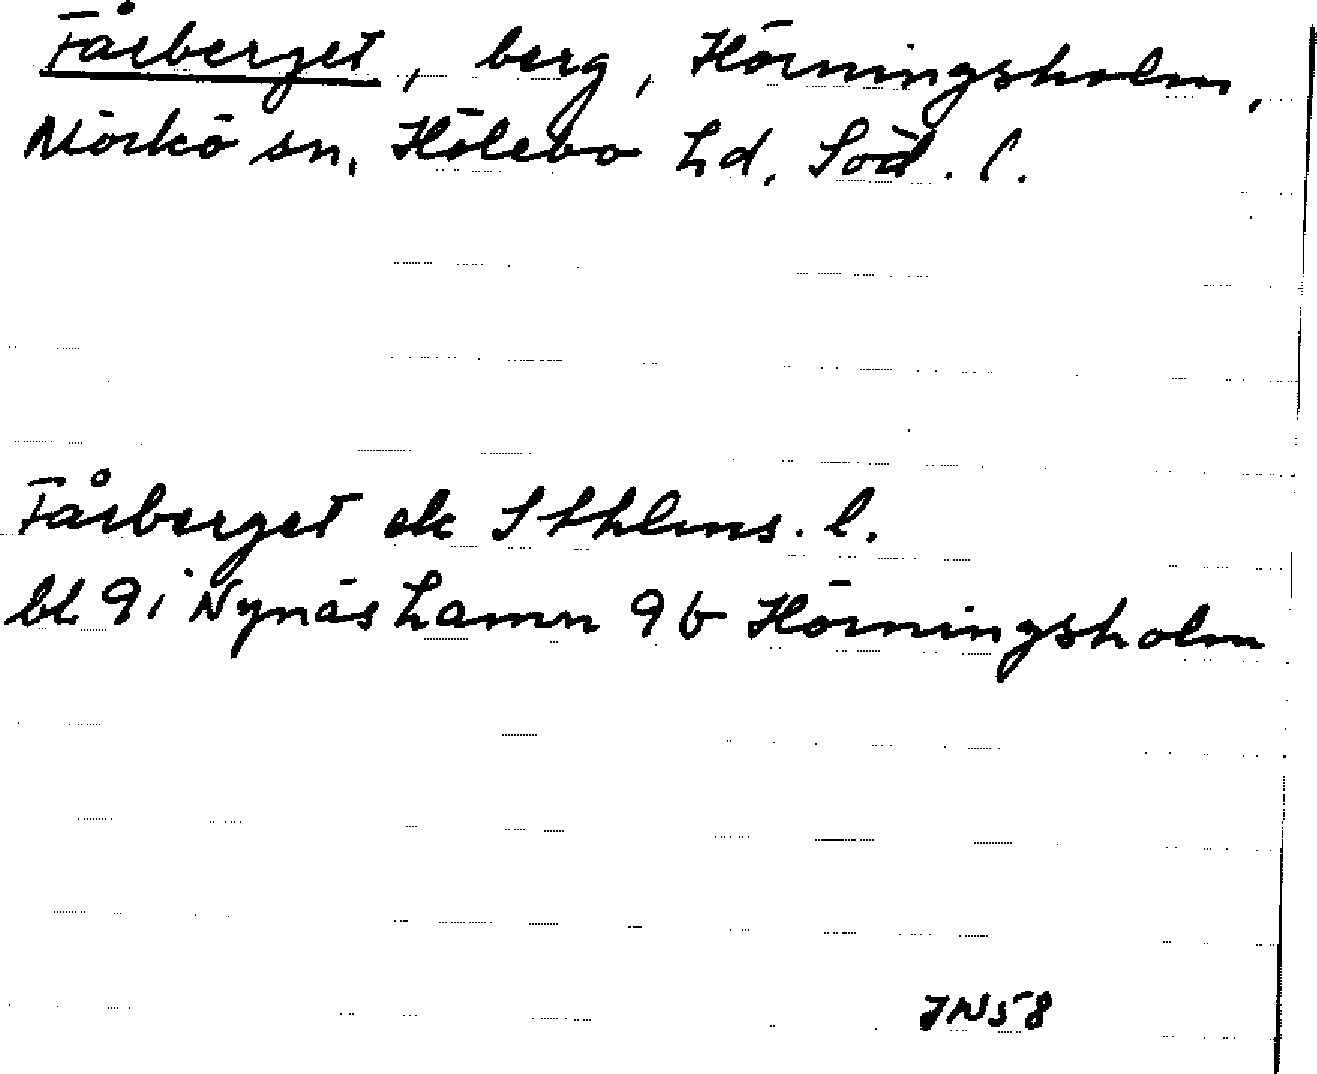 Fårberget, berg, Hörningsholm,
Mörkö sn, Hölebo hd, Söd. l.
Fårberget ek Sthlms. l.
bl. 9i Nynäshamn 9b Hörningsholm
JN58